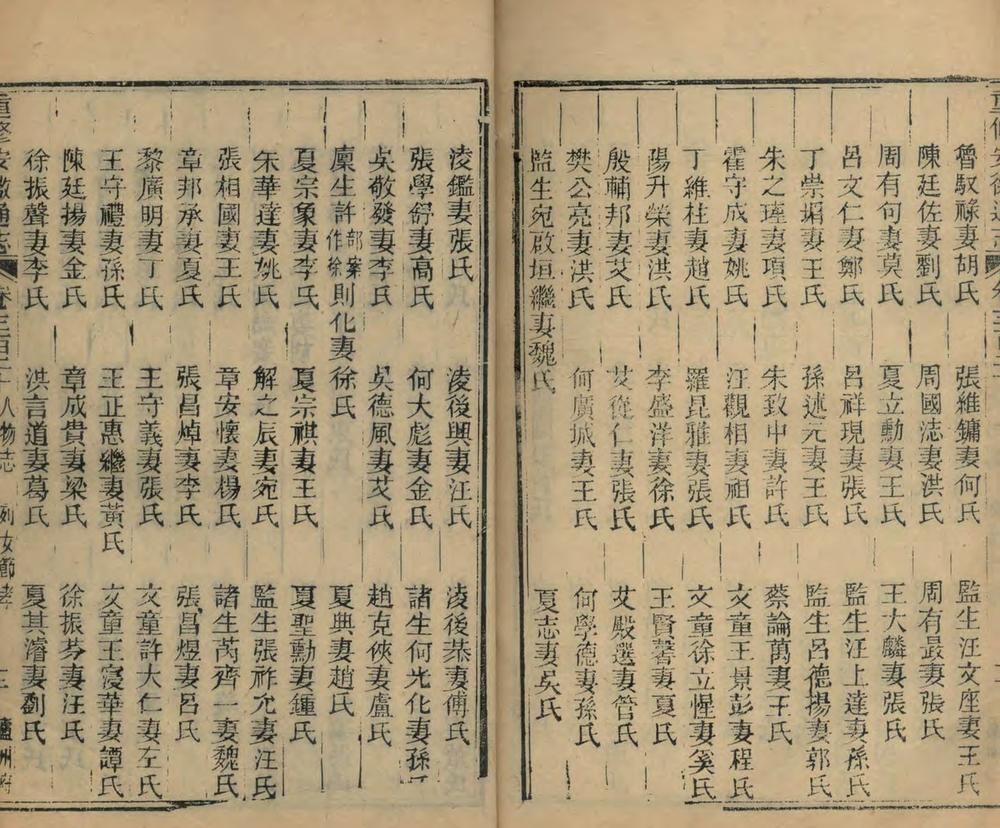 魯馭祿妻胡氏　張維鏞妻何氏　監生汪文座妻王氏
陳廷佐妻劉氏　周國誌妻洪氏　周有最妻張氏
周有句妻莫氏　夏立勳妻王氏　王大麟妻張氏
呂文仁妻鄭氏　呂祥現妻張氏　監生汪上達妻孫氏
丁崇妻王氏　孫述元妻王氏　監生呂德揚妻郭氏
朱之璉妻項氏　朱致中妻許氏　蔡論萬妻王氏
霍守成妻姚氏　汪觀相妻祖氏　文童王景彭妻程氏
丁維柱妻趙氏　羅昆雅妻張氏　文童徐立惺妻奚氏
陽升榮妻洪氏　李盛洋妻徐氏　王賢馨妻夏氏
殷輔邦妻艾氏　艾從仁妻張氏　艾殿選妻管氏
樊公亮妻洪氏　何廣城妻王氏　何學德妻孫氏
監生宛啟垣繼妻魏氏　夏志妻吳氏
凌鑑妻張氏　凌後興妻汪氏　凌後棊妻傅氏
張學舒妻高氏　何大彪妻金氏　諸生何光化妻孫
吳敬發妻李氏　吳德風妻艾氏　趙克俠妻盧氏
廩生許部案作徐則化妻徐氏　夏興妻趙氏
夏宗象妻李氏　夏宗祺妻王氏　夏聖勳妻鍾氏
朱華達妻姚氏　解之辰妻宛氏　監生張祚允妻汪氏
張相國妻王氏　章安懷妻楊氏　諸生芮齊一妻魏氏
章邦承妻夏氏　張昌焯妻李氏　張昌煜妻呂氏
黎廣明妻丁氏　王守義妻張氏　文童許大仁妻左氏
王守禮妻孫氏　王正惠繼妻黃氏　文童王寖華妻譚氏
陳廷揚妻金氏　章成貴妻梁氏　徐振芬妻汪氏
徐振聲妻李氏　洪言道妻葛氏　夏其濬妻劉氏
重修安徽通志　人物志　列女節孝　廬州府